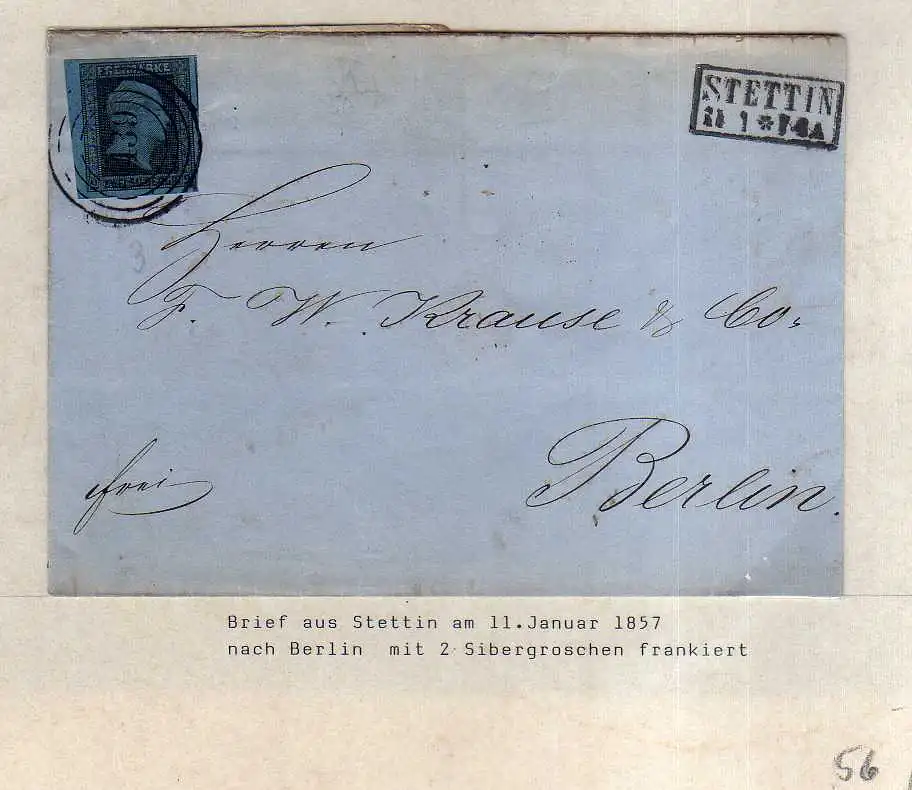 FREIMARKE
STETTIN
11 1 *
Herren
F. W. Krause & Co.
frei
Berlin.
Brief aus Stettin am 11.Januar 1857
nach Berlin mit 2 Sibergroschen frankiert
56